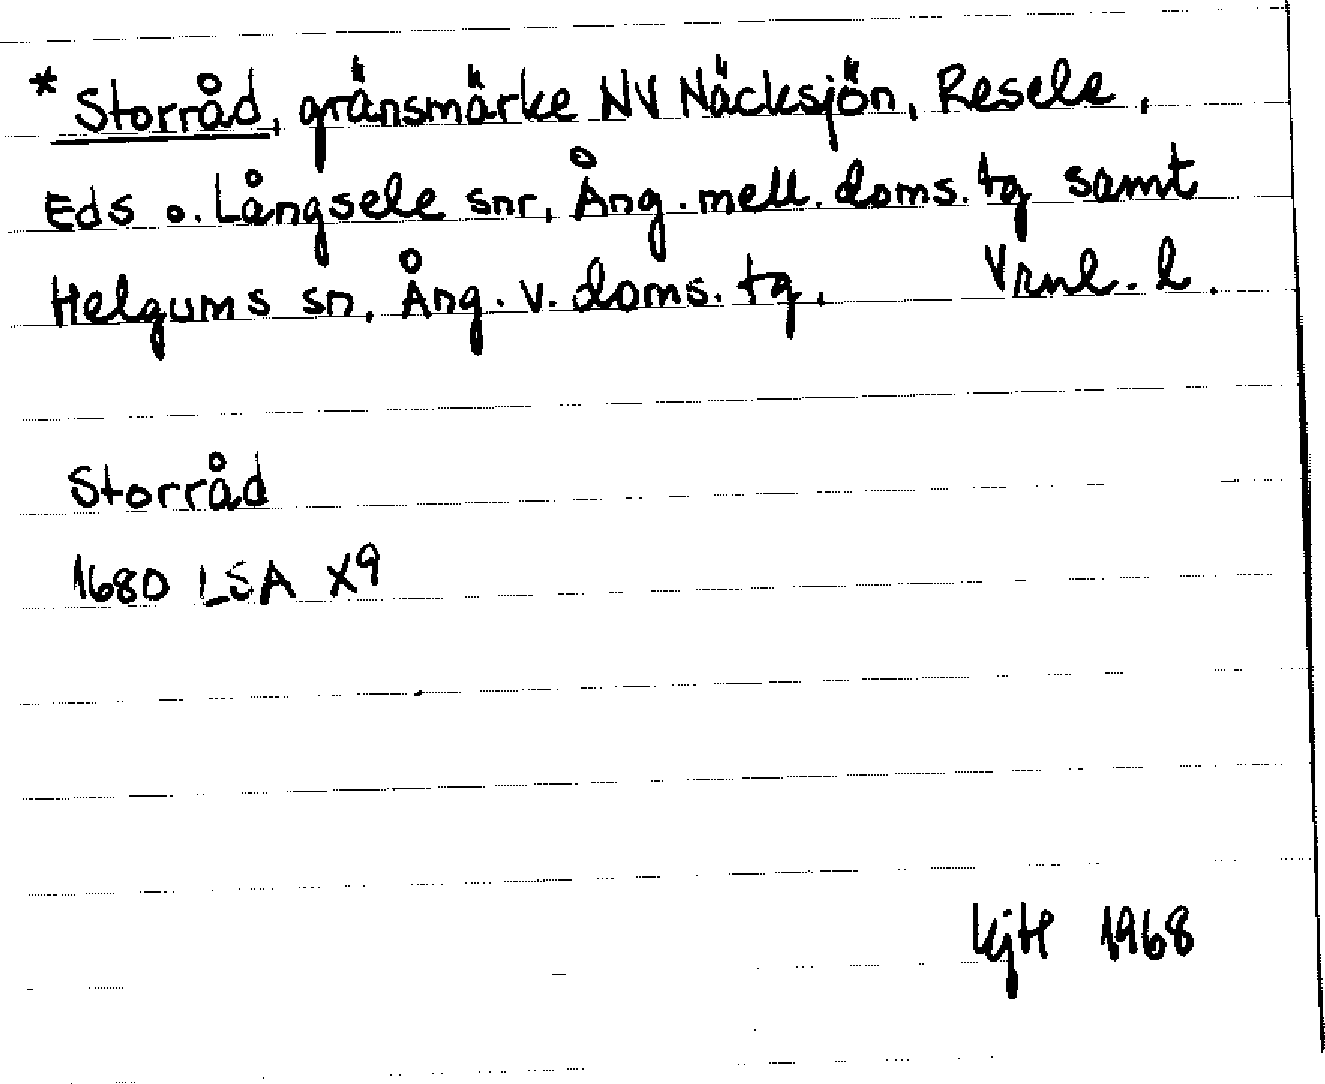 * Storråd, gränsmärke NV Näcksjön, Resele,
Eds o. Långsele snr, Ång. mell. doms. tg samt
Helgums sn, Ång. v. doms. tg. Vrnl. l.
Storråd
1680 LSA X9
KjH 1968